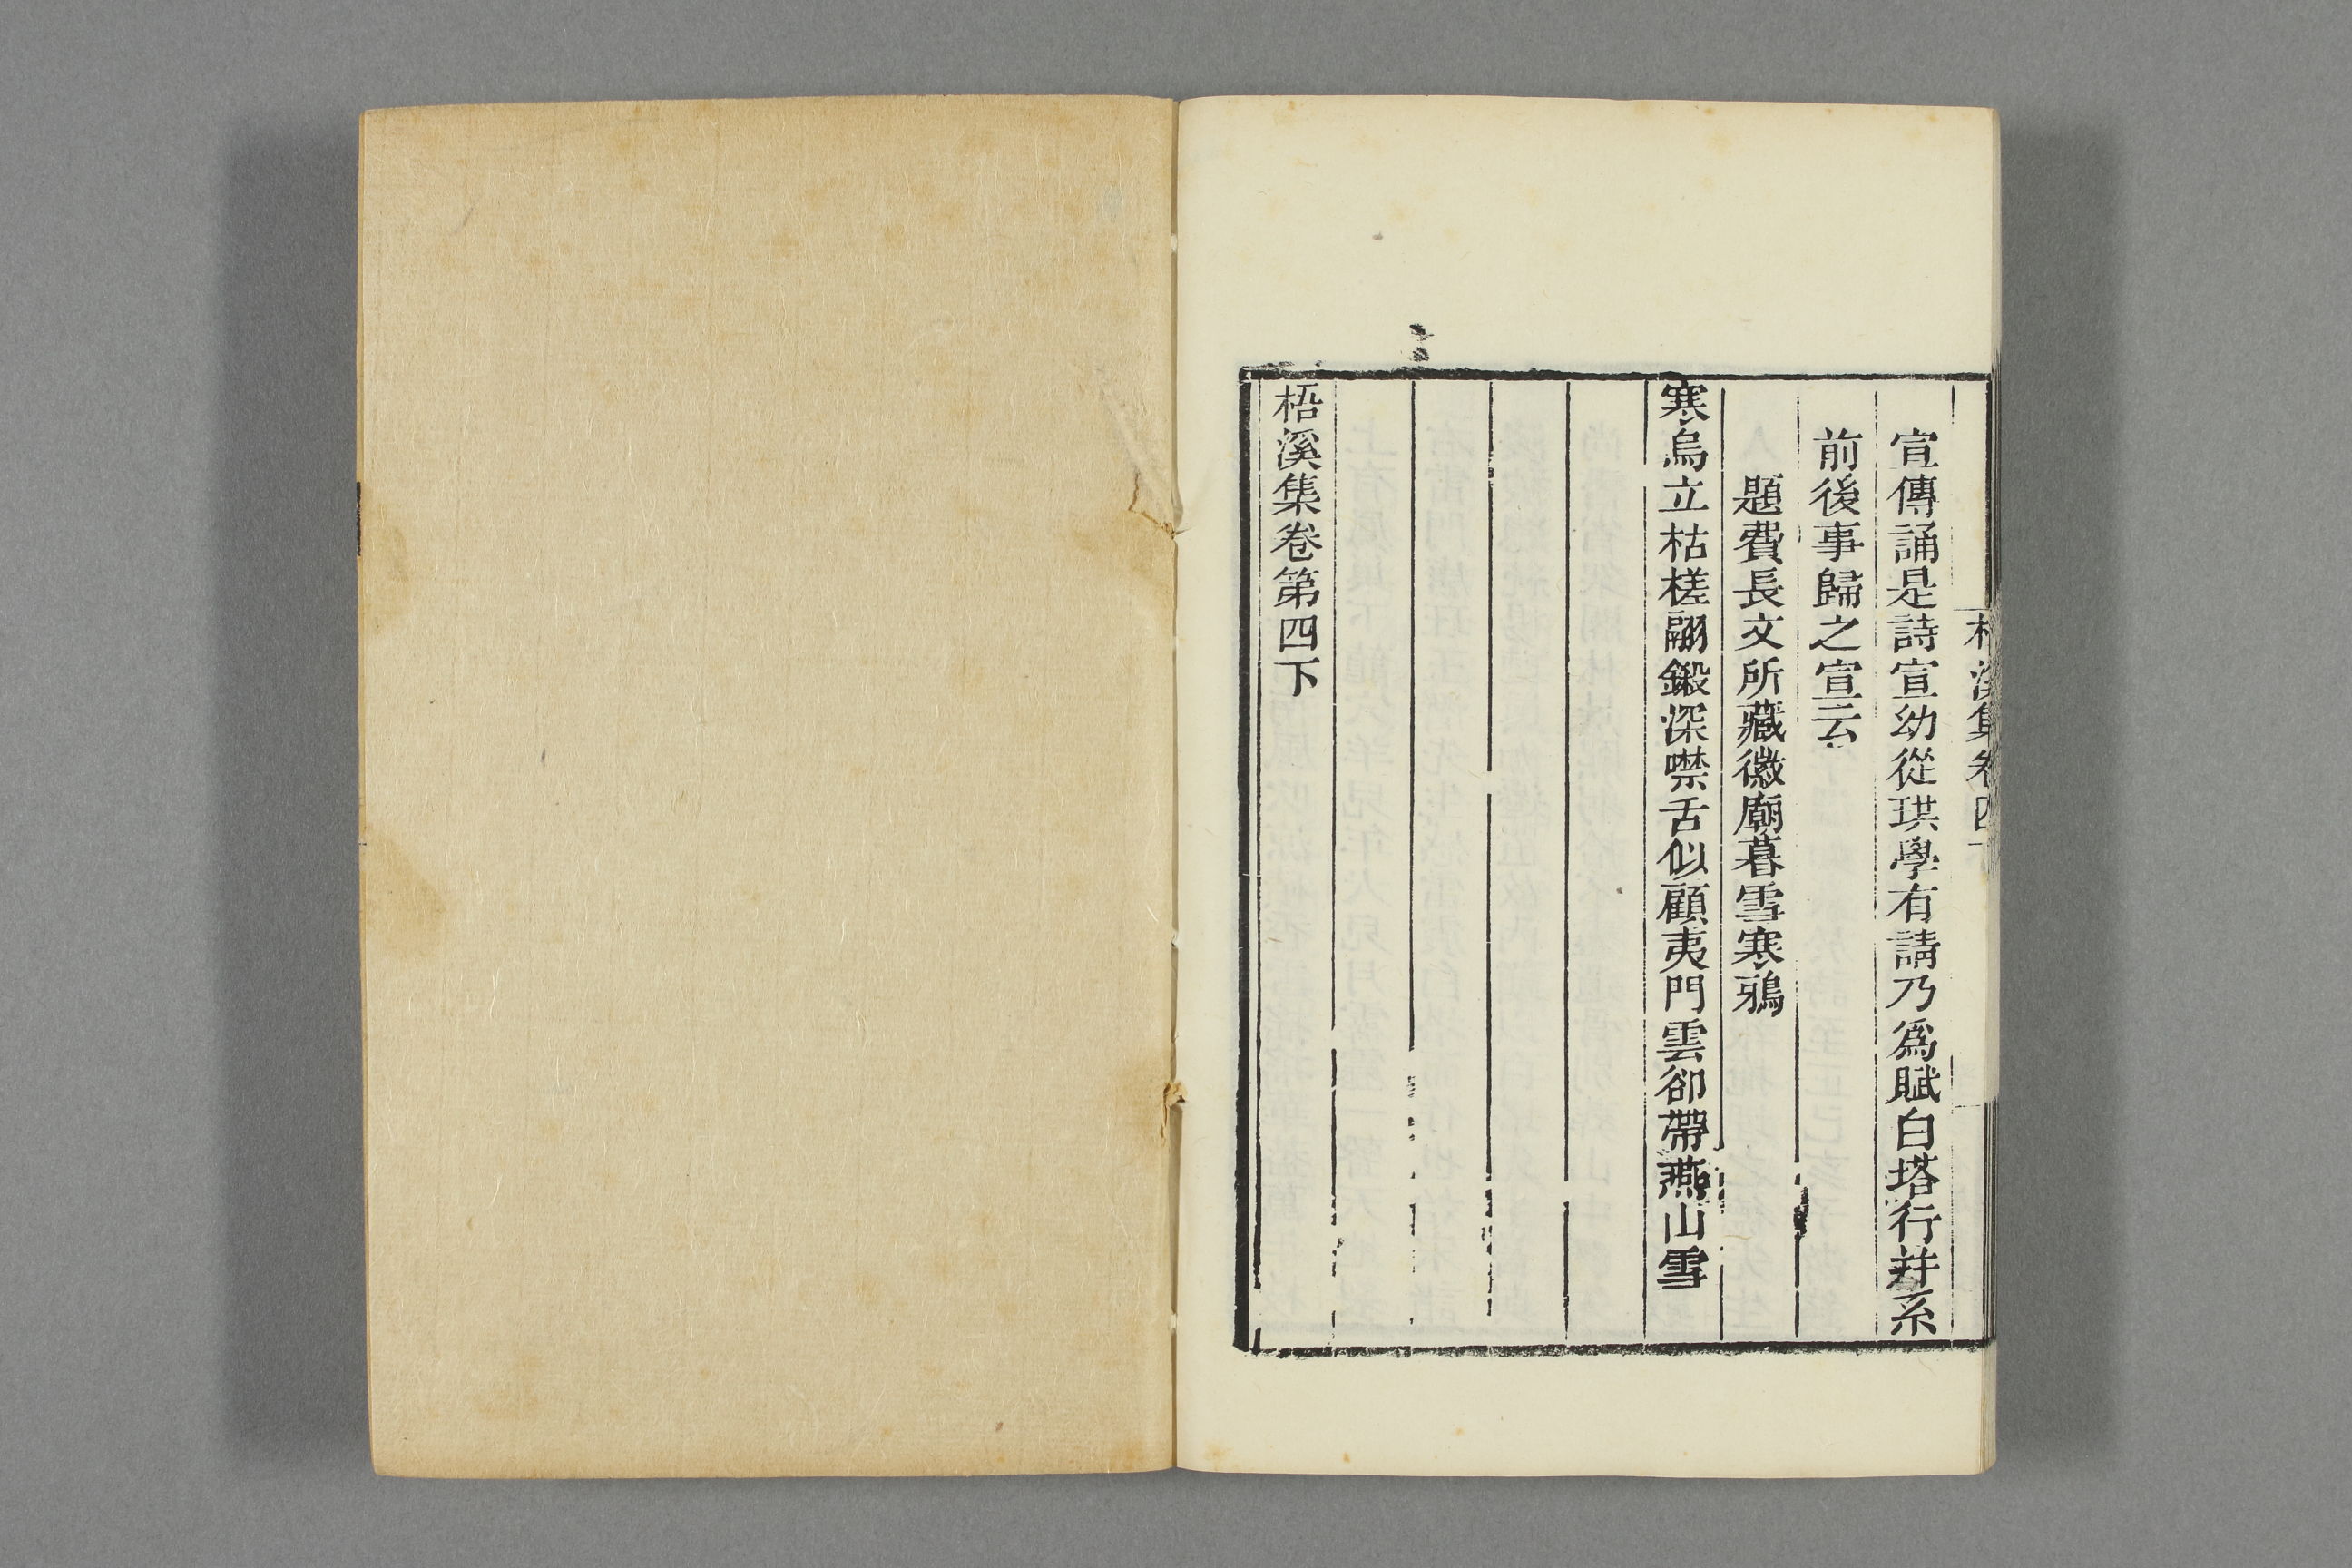 宣傳誦是詩宣幼從珙學有請乃爲賦白塔行幷系
前後事歸之宣云
題費長文所藏徽廟暮雪寒鴉
寒烏立枯槎翮鎩深噤舌似顧夷門雲卻帶燕山雪
梧溪集卷第四下
梧溪集卷四下